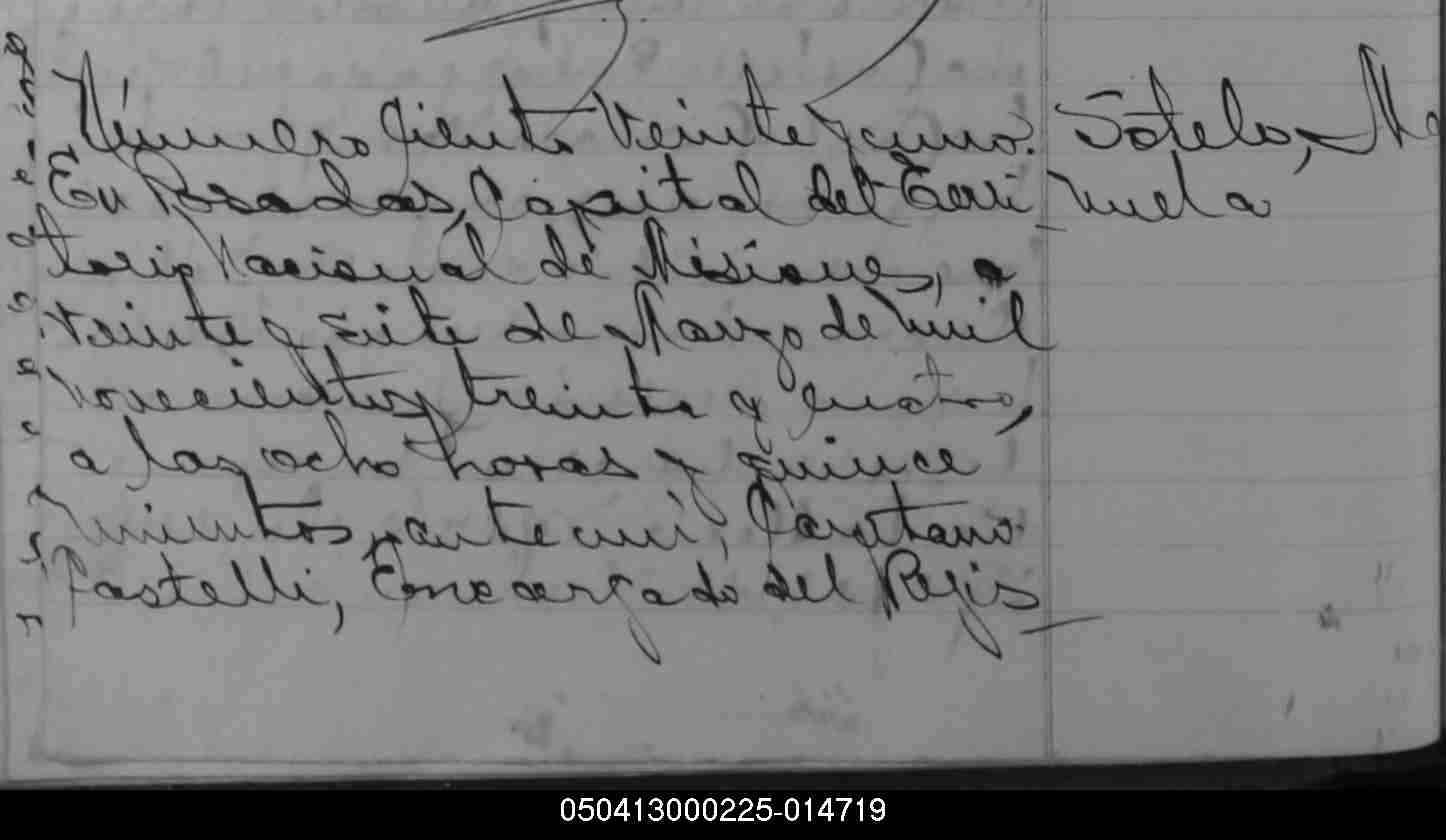 Número Ciento Veinte y uno.
En Posadas, Capital del Terri
torio Nacional de Misiones, a
veinte y siete de Marzo de mil
novecientos treinta y cuatro,
a las ocho horas y quince
minutos, ante mi, Cayetano
Castelli, Encargado del Regis
Sotelo, Ma
nuela
050413000225-014719